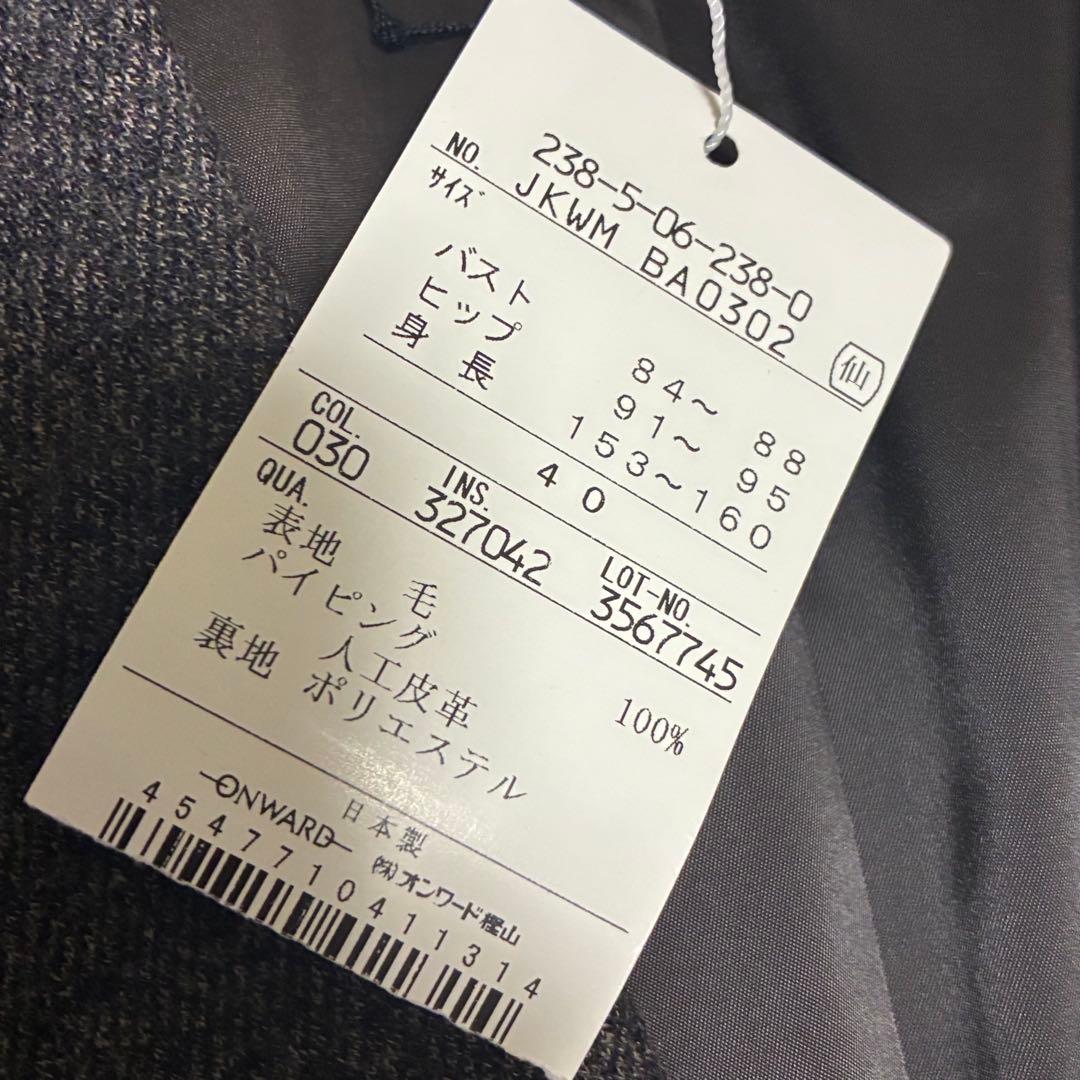 238-5-06-238-0
NO. JKWM BA0302
サイズ 仙
バスト 84~ 88
ヒップ 91~ 95
身長 153~160
40
COL. INS. LOT-NO.
030 327042 3567745
QUA.
表地 毛 100%
パイピング
人工皮革
裏地 ポリエステル
日本製
ONWARD (株)オンワード樫山
4547710411314